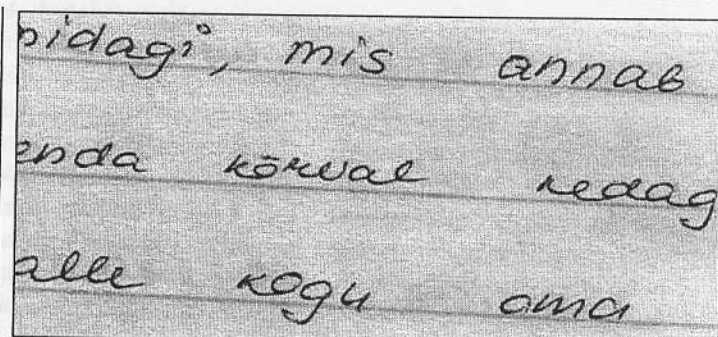 midagi, mis annab
enda kõrval kedag
alle kogu oma